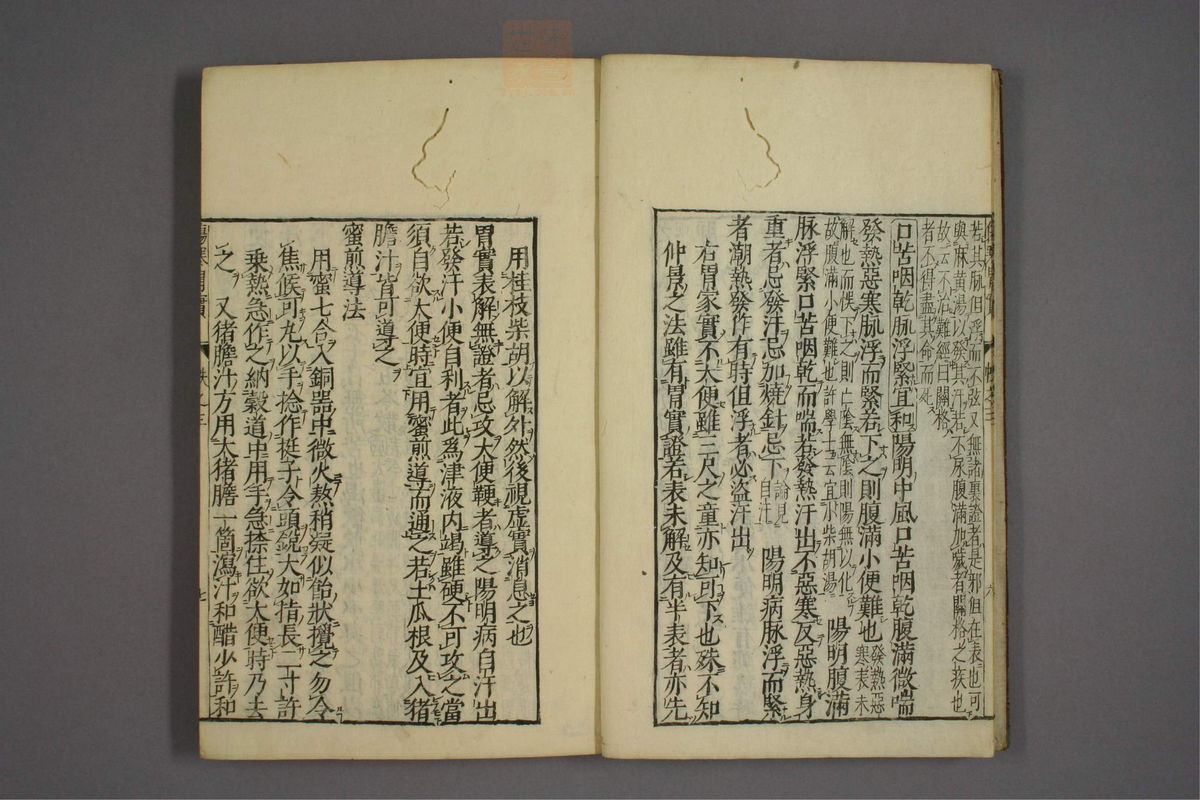 若其脉但浮而不弦又無諸裏證者是邪但在表也可
與麻黃湯以發其汗若不尿腹滿加噦者關格之疾也
故云不治難經曰關格
者不得盡其命而死
口苦咽乾脉浮緊宜和陽明中風口苦咽乾腹滿微喘
發熱惡寒脉浮而緊若下之則腹滿小便難也發熱惡寒表未
解也而悞下之則亡陰無陰則陽無以化
故腹滿小便難也許學士云宜小柴胡湯 陽明腹滿
脉浮緊口苦咽乾而喘若發熱汗出不惡寒反惡熱身
重者忌發汗忌加燒針忌下論見自汗 陽明病脉浮而緊
者潮熱發作有時但浮者必盜汗出
右胃家實不大便雖三尺之童亦知可下也殊不知
仲景之法雖有胃實證若表未解及有半表者亦先
用桂枝柴胡以解外然後視虛實消息之也
胃實表解無證者忌攻大便鞕者導之陽明病自汗出
若發汗小便自利者此爲津液内竭雖硬不可攻之當
須自欲大便時宜用蜜煎導而通之若土瓜根及入猪
膽汁皆可導之
蜜煎導法
用蜜七合入銅器中微火熬稍凝似飴狀攪之勿令
焦候可丸以手捻作挺子令頭銳大如指長二寸許
乗熱急作之納穀道中用手急捺住欲大便時乃去
之 又猪膽汁方用大猪膽一箇瀉汁和醋少許和
七